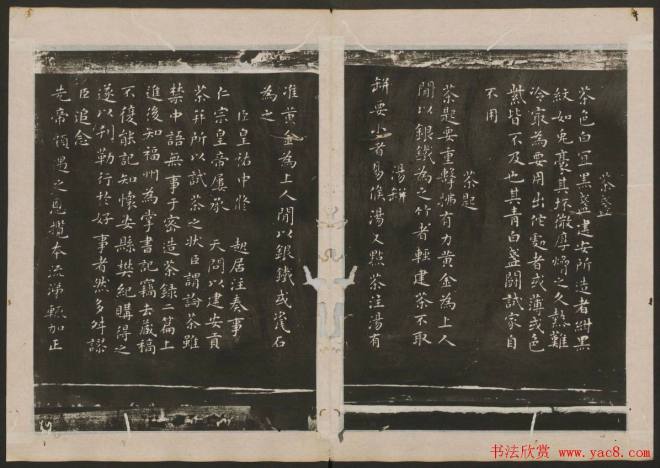 茶盞
茶色白宜黑盞建安所造者紺黑
紋如兔毫其坯微厚熁之久熱難
冷最為要用出他處者或薄或色
紫皆不及也其青白盞鬭試家自
不用
茶匙
茶匙要重擊拂有力黃金為上人
間以銀鐵為之竹者輕建茶不取
湯缾
缾要小者易候湯又點茶注湯有
准黃金為上人間以銀鐵或瓷石
為之
臣皇祐中修 起居注奏事
仁宗皇帝屢承 天問以建安貢
茶并所以試茶之狀臣謂論茶雖
禁中語無事于密造茶錄二篇上
進後知福州為掌書記竊去藏稿
不復能記知懷安縣樊紀購得之
遂以刊勒行於好事者然多舛謬
臣追念
先帝顧遇之恩攬本流涕輒加正
书法欣赏 www.yac8.com